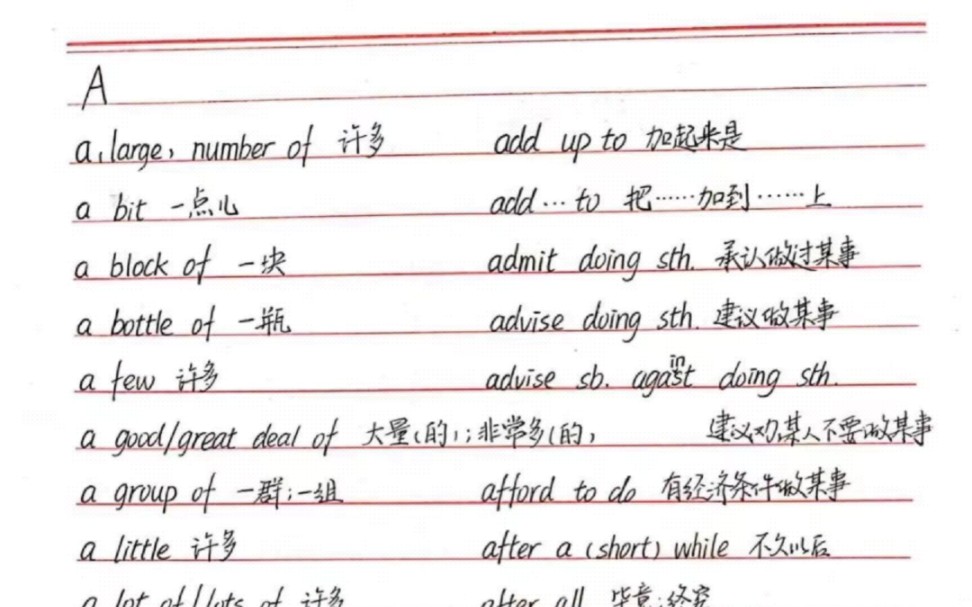 A
a (large) number of 许多 add up to 加起来是
a bit 一点儿 add … to 把……加到……上
a block of 一块 admit doing sth. 承认做过某事
a bottle of 一瓶 advise doing sth. 建议做某事
a few 许多 advise sb. against doing sth.
a good/great deal of 大量(的);非常多(的) 建议/劝某人不要做某事
a group of 一群;一组 afford to do 有经济条件做某事
a little 许多 after a (short) while 不久以后
a lot of/lots of 许多 after all 毕竟;终究